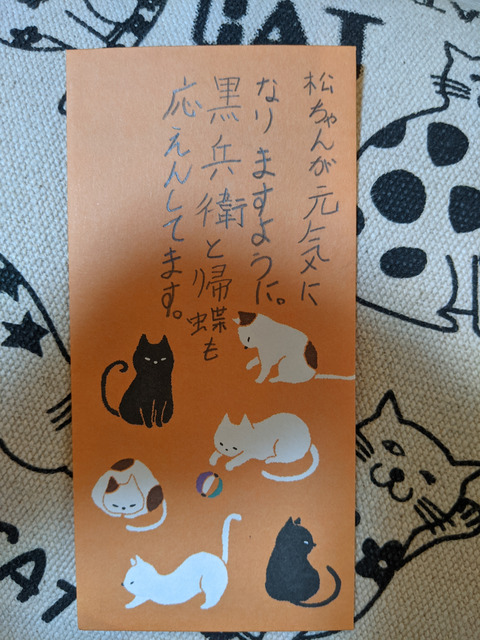 松ちゃんが元気に
なりますように。
黒兵衛と帰蝶も
応えんしてます。
CAT